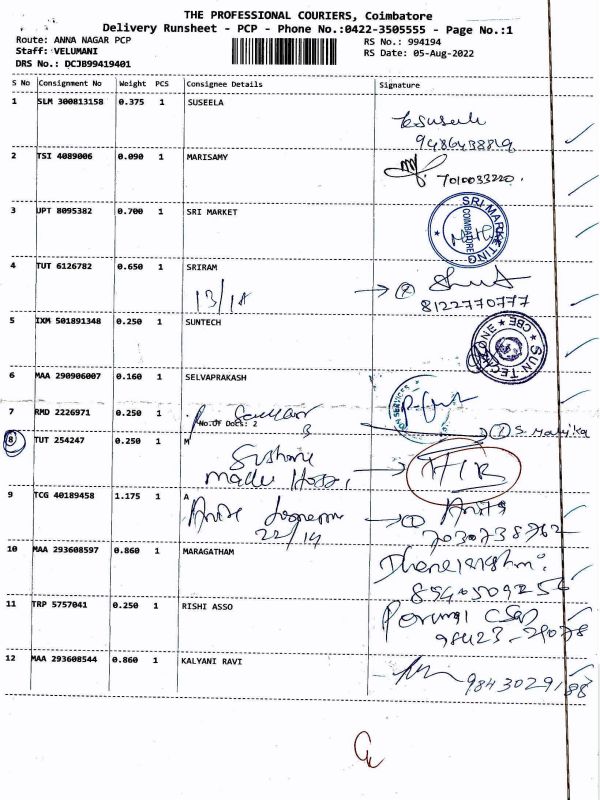 THE PROFESSIONAL COURIERS, Coimbatore
Delivery Runsheet - PCP - Phone No.:0422-3505555 - Page No.:1
Route: ANNA NAGAR PCP
RS No.: 994194
Staff: VELUMANI
RS Date: 05-Aug-2022
DRS No.: DCJB99419401
S No Consignment No Weight PCS Consignee Details Signature
1 SLM 300813158 0.375 1 SUSEELA
9486438819
2 TSI 4089006 0.090 1 MARISAMY
7010033220.
3 UPT 8095382 0.700 1 SRI MARKET
SRI MARKETING
COIMBATORE
4 TUT 6126782 0.650 1 SRIRAM
8122770777
5 IXM 501891348 0.250 1 SUNTECH
SUN-TECH ZONE ★ CBE ★
6 MAA 290906007 0.160 1 SELVAPRAKASH
SERVICES
7 RMD 2226971 0.250 1
No.Of Docs: 2
8 TUT 254247 0.250 1 M
9 TCG 40189458 1.175 1 A
22/14
7030738762
10 MAA 293608597 0.860 1 MARAGATHAM
11 TRP 5757041 0.250 1 RISHI ASSO
98423-29078
12 MAA 293608544 0.860 1 KALYANI RAVI
9843029188